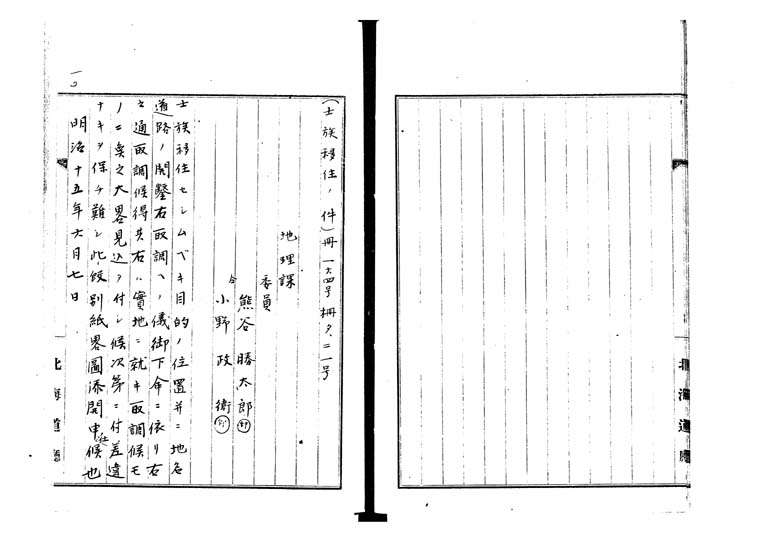 (士族移住ノ件)冊一六四号 冊タ二一号
地理課
委員
熊谷勝太郎㊞
仝
小野政衛㊞
士族移住セシムベキ目的ノ位置并ニ地名
道路ノ開鑿右取調ヘノ儀御下命ニ依リ右
之通取調候得共右ハ實地ニ就キ取調候モ
ノニ無之大畧見込ヲ付シ候次第ニ付差違
ナキヲ保チ難シ此段別紙畧圖添開申仕候也
明治十五年六月七日
北海道廳
北海道廳